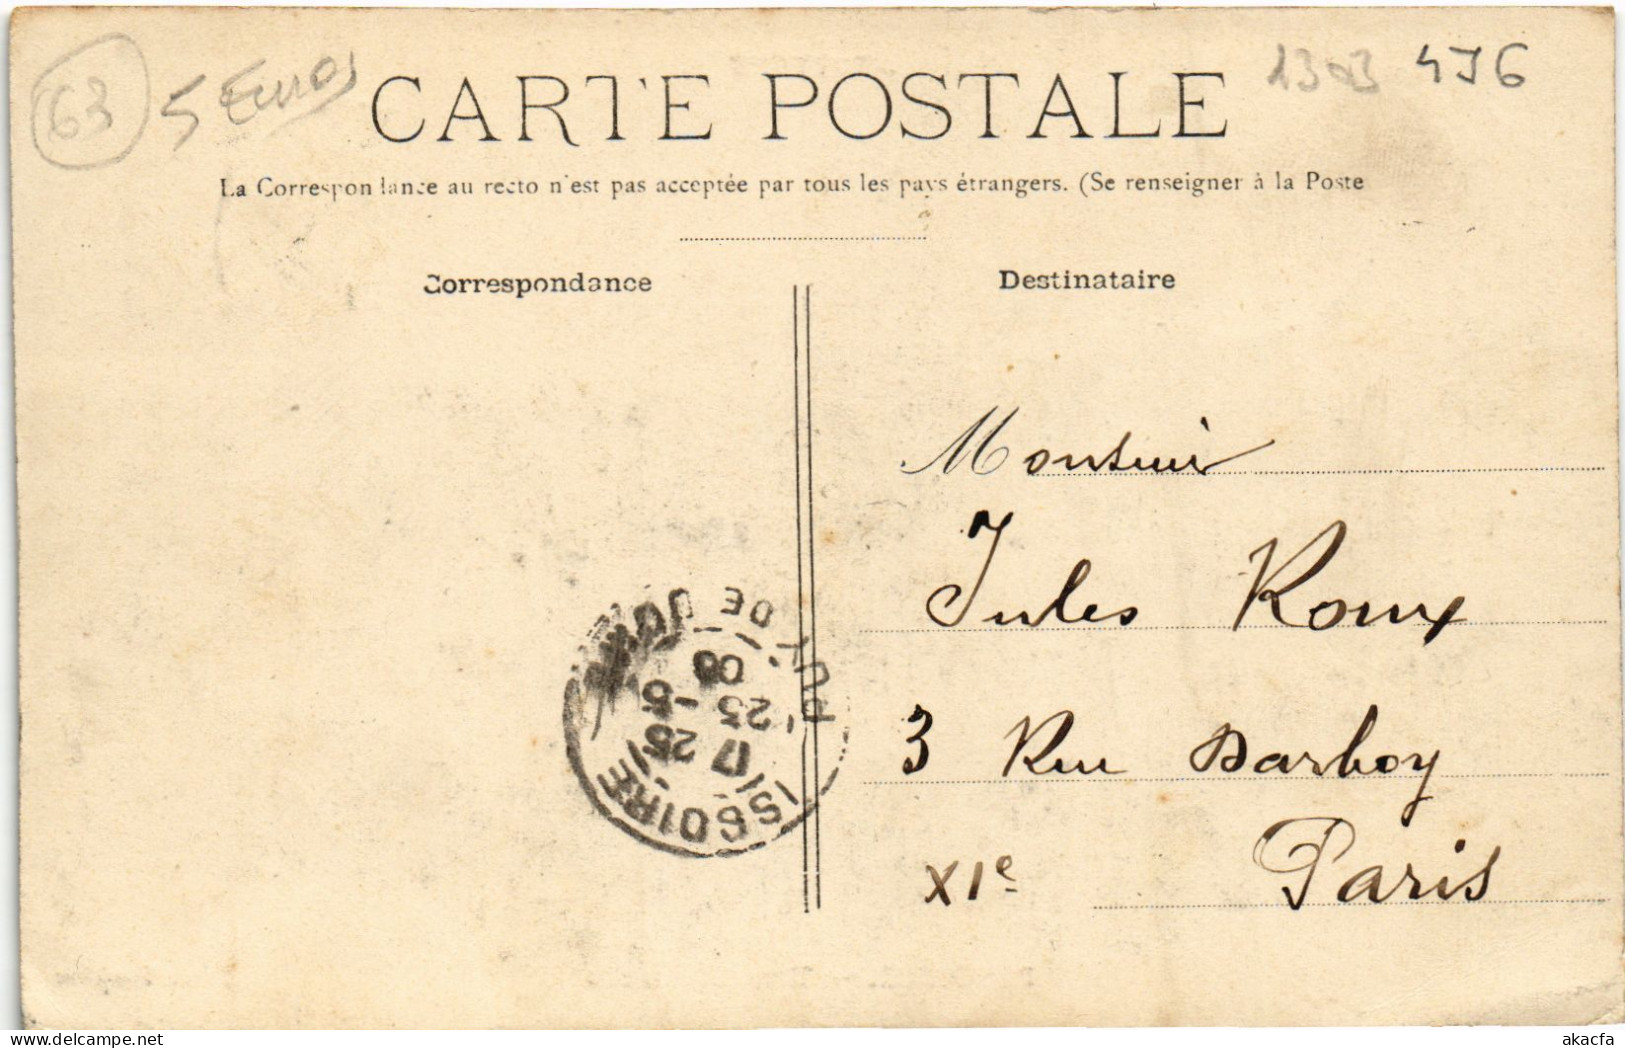 63
5 Euros
1303 4J6
CARTE POSTALE
La Correspondance au recto n'est pas acceptée par tous les pays étrangers. (Se renseigner à la Poste
Correspondance
Destinataire
Monsieur
Jules Roux
3 Rue Darboy
XIe Paris
ISSOIRE
PUY DE DOME
17 25
25 -5
08
akacfa